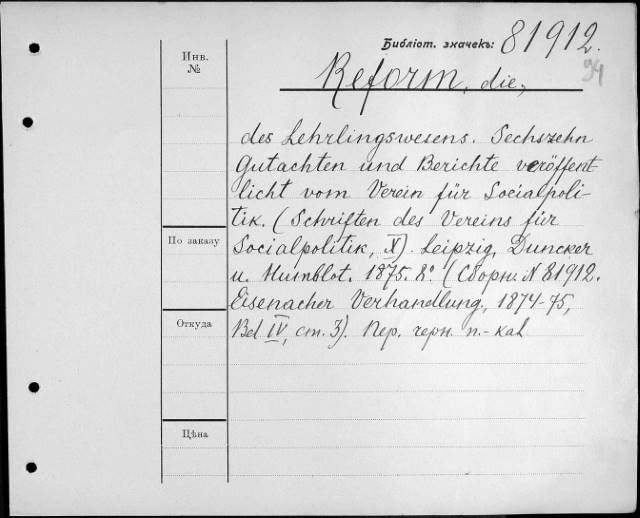 Инв.
№
Библіот. значекъ: 81912.
94
Reform, die,
des Lehrlingswesens. Sechszehn
Gutachten und Berichte veröffent-
licht vom Verein für Socialpoli-
tik. (Schriften des Vereins für
По заказу
Socialpolitik, X). Leipzig, Duncker
u. Humblot. 1875. 8°. (Сборн. N 81912.
Eisenacher Verhandlung, 1874-75,
Откуда
Bd IV, ст. 3). Пер. черн. п.-кал.
Цѣна